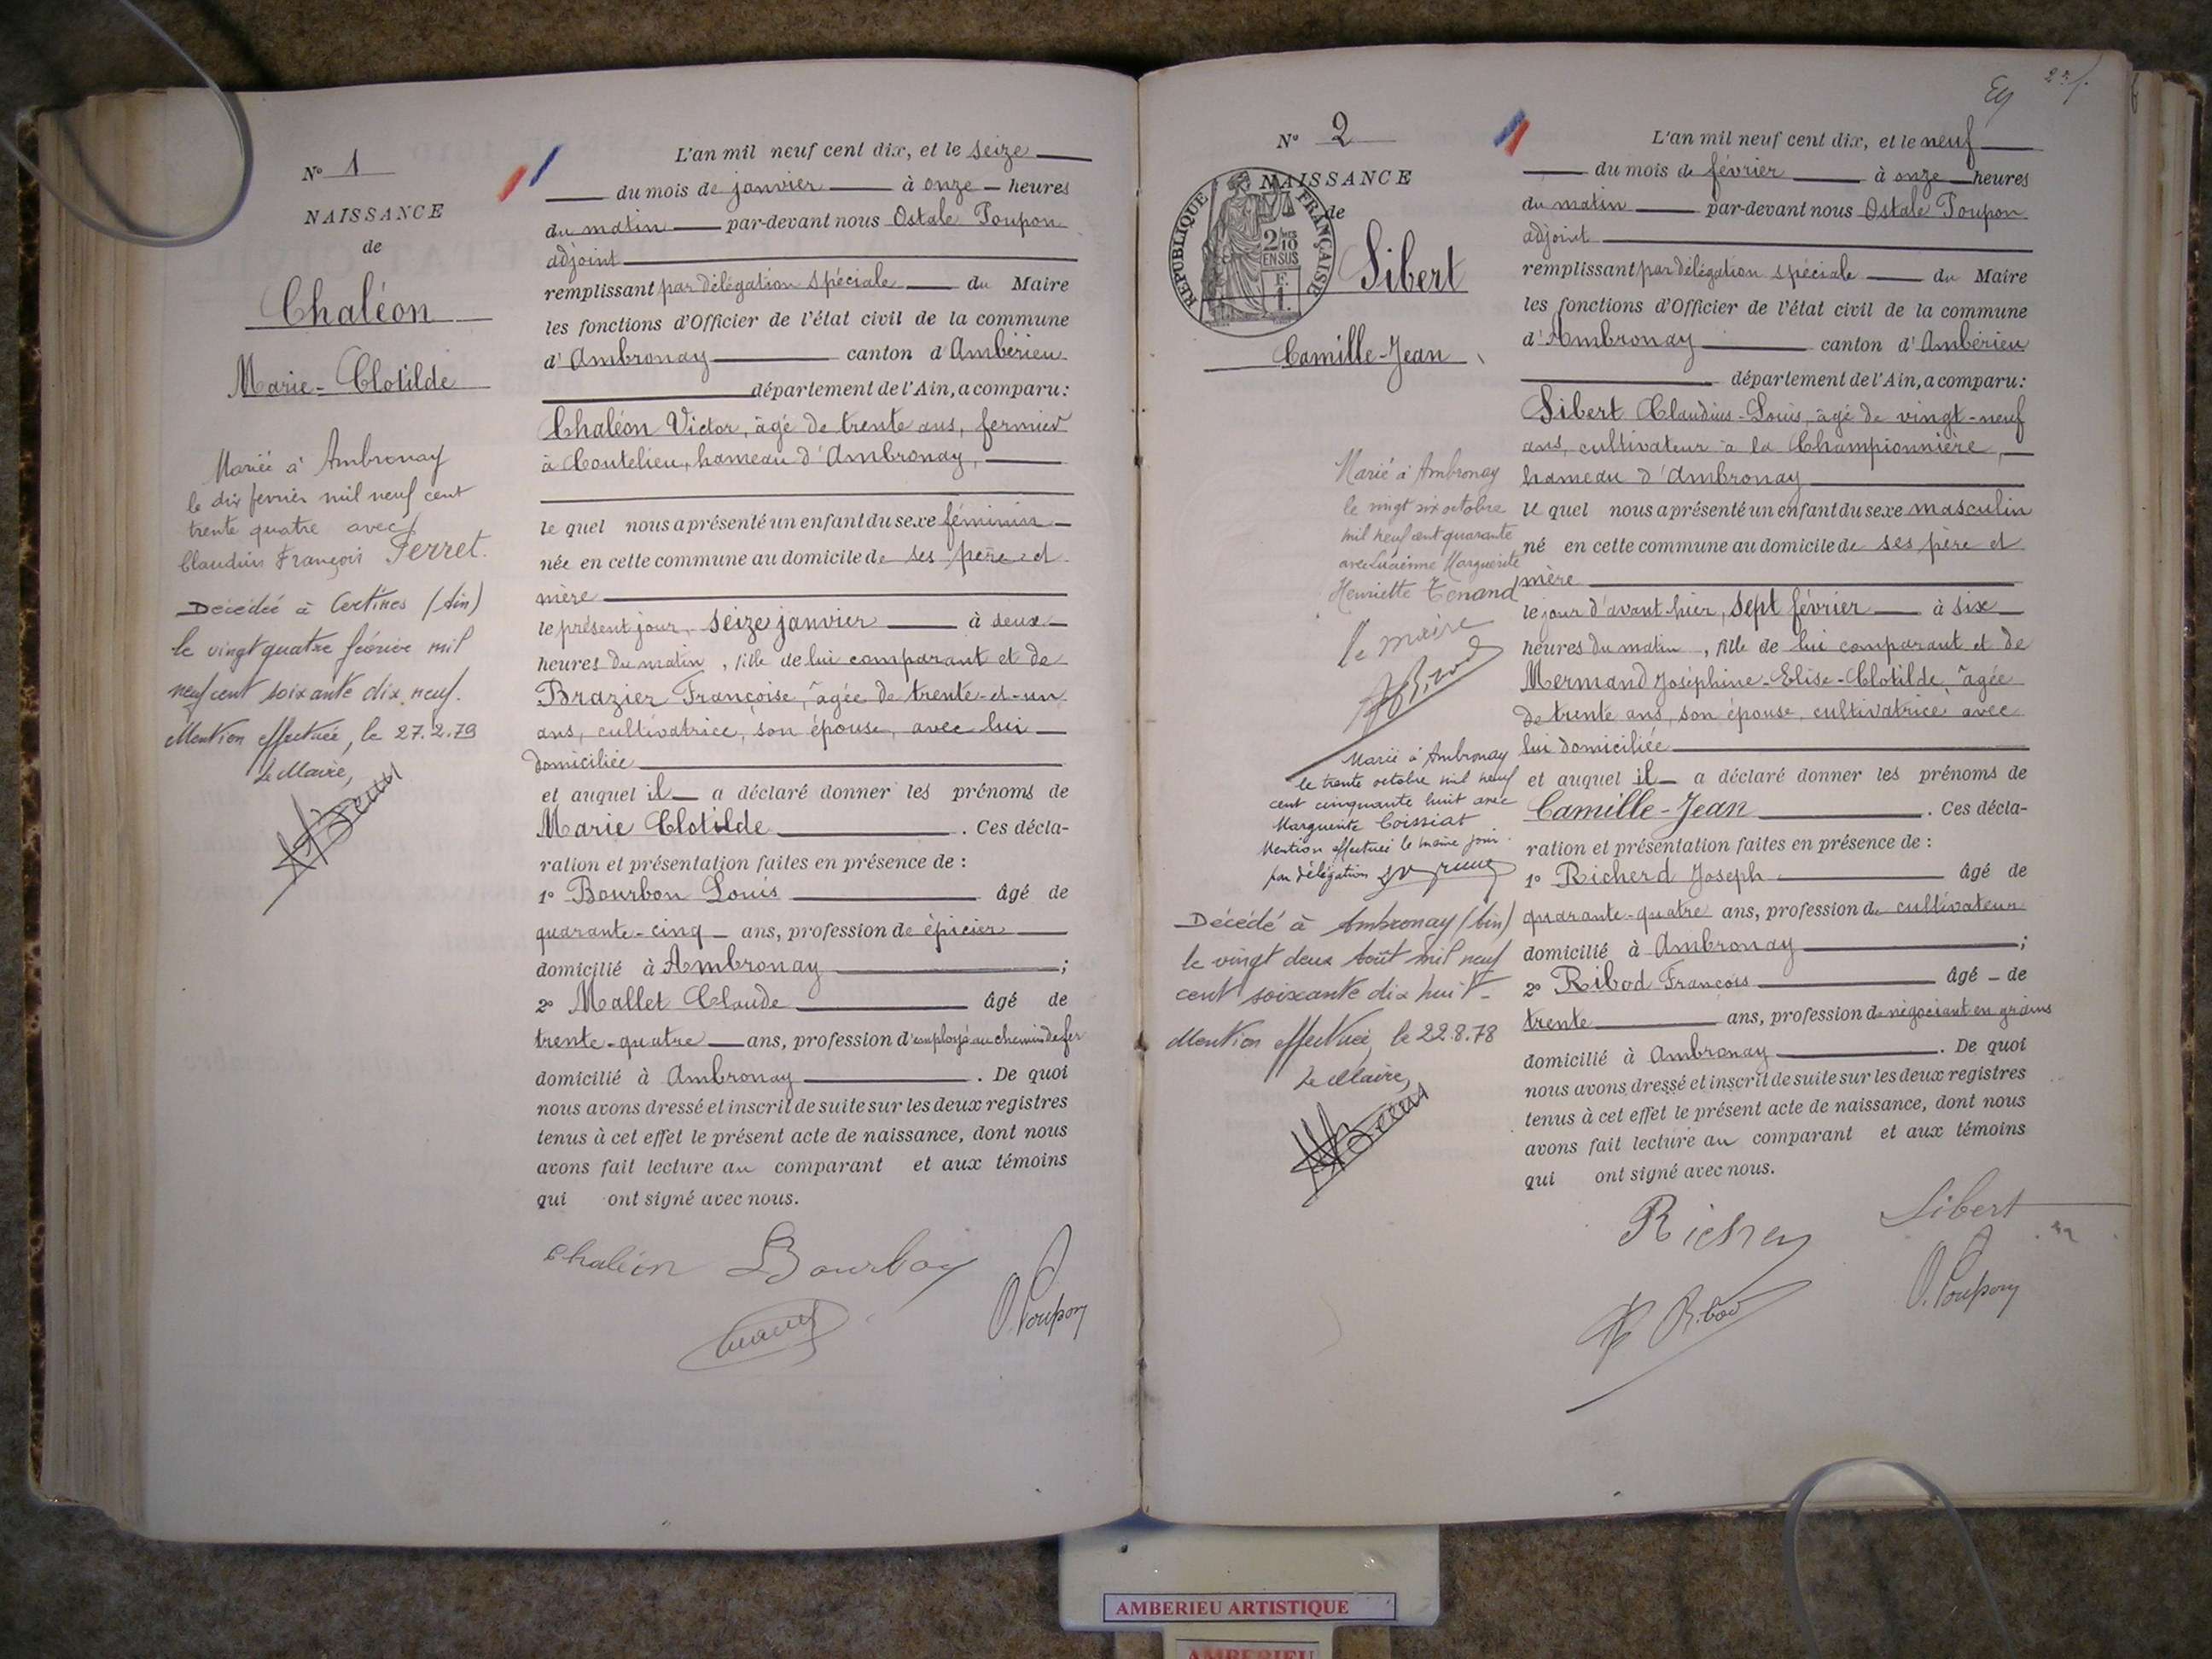 N° 1
NAISSANCE
de
Chaléon
Marie-Clotilde
Mariée à Ambronay
le dix fevrier mil neuf cent
trente quatre avec
Claudius François Ferret.
Décédée à Certines (Ain)
le vingt quatre février mil
neuf cent soixante dix neuf.
Mention effectuée, le 27.2.79
Le Maire,
L'an mil neuf cent dix, et le seize
du mois de janvier à onze heures
du matin par-devant nous Ostale Poupon
adjoint
remplissant par délégation spéciale du Maire
les fonctions d'Officier de l'état civil de la commune
d'Ambronay canton d'Ambérieu
département de l'Ain, a comparu:
Chaléon Victor, âgé de trente ans, fermier
à Coutelieu, hameau d'Ambronay,
le quel nous a présenté un enfant du sexe féminin
née en cette commune au domicile de ses père et
mère
le présent jour, seize janvier à deux
heures du matin, fille de lui comparant et de
Brazier Françoise, âgée de trente-et-un
ans, cultivatrice, son épouse, avec lui
domiciliée
et auquel il a déclaré donner les prénoms de
Marie Clotilde. Ces décla-
ration et présentation faites en présence de :
1° Bourbon Louis âgé de
quarante-cinq ans, profession de épicier
domicilié à Ambronay ;
2° Mallet Claude âgé de
trente-quatre ans, profession d'employé au chemin de fer
domicilié à Ambronay. De quoi
nous avons dressé et inscrit de suite sur les deux registres
tenus à cet effet le présent acte de naissance, dont nous
avons fait lecture au comparant et aux témoins
qui ont signé avec nous.
Chaléon Bourbon
O. Poupon
N° 2
NAISSANCE
de
RÉPUBLIQUE FRANÇAISE
2/10 EN SUS
F. 1
Sibert
Camille-Jean
Marié à Ambronay
le vingt six octobre
mil neuf cent quarante
avec Lucienne Marguerite
Henriette Tenand
le maire
Marié à Ambronay
le trente octobre mil neuf
cent cinquante huit avec
Marguerite Coissiat
Mention effectuée le même jour
par délégation
Décédé à Ambronay (Ain)
le vingt deux Août mil neuf
cent soixante dix huit
Mention effectuée, le 22.8.78
Le Maire,
L'an mil neuf cent dix, et le neuf
du mois de février à onze heures
du matin par-devant nous Ostale Poupon
adjoint
remplissant par délégation spéciale du Maire
les fonctions d'Officier de l'état civil de la commune
d'Ambronay canton d'Ambérieu
département de l'Ain, a comparu:
Sibert Claudius-Louis, âgé de vingt-neuf
ans, cultivateur à la Championnière,
hameau d'Ambronay
le quel nous a présenté un enfant du sexe masculin
né en cette commune au domicile de ses père et
mère
le jour d'avant-hier, sept février à six
heures du matin, fils de lui comparant et de
Mermand Joséphine-Elise-Clotilde, âgée
de trente ans, son épouse, cultivatrice avec
lui domiciliée
et auquel il a déclaré donner les prénoms de
Camille-Jean. Ces décla-
ration et présentation faites en présence de :
1° Richerd Joseph âgé de
quarante-quatre ans, profession de cultivateur
domicilié à Ambronay ;
2° Ribod François âgé de
trente ans, profession de négociant en grains
domicilié à Ambronay. De quoi
nous avons dressé et inscrit de suite sur les deux registres
tenus à cet effet le présent acte de naissance, dont nous
avons fait lecture au comparant et aux témoins
qui ont signé avec nous.
Sibert
Ribod
O. Poupon
AMBERIEU ARTISTIQUE
AMBERIEU